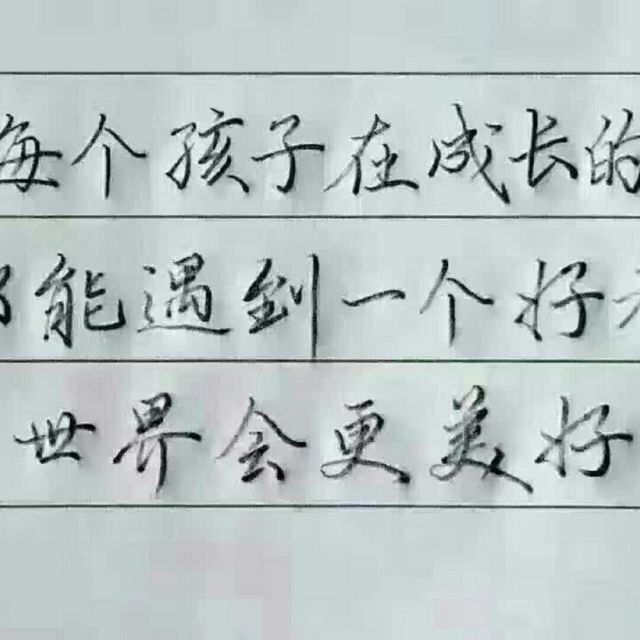 每个孩子在成长的
能遇到一个好
世界会更美好